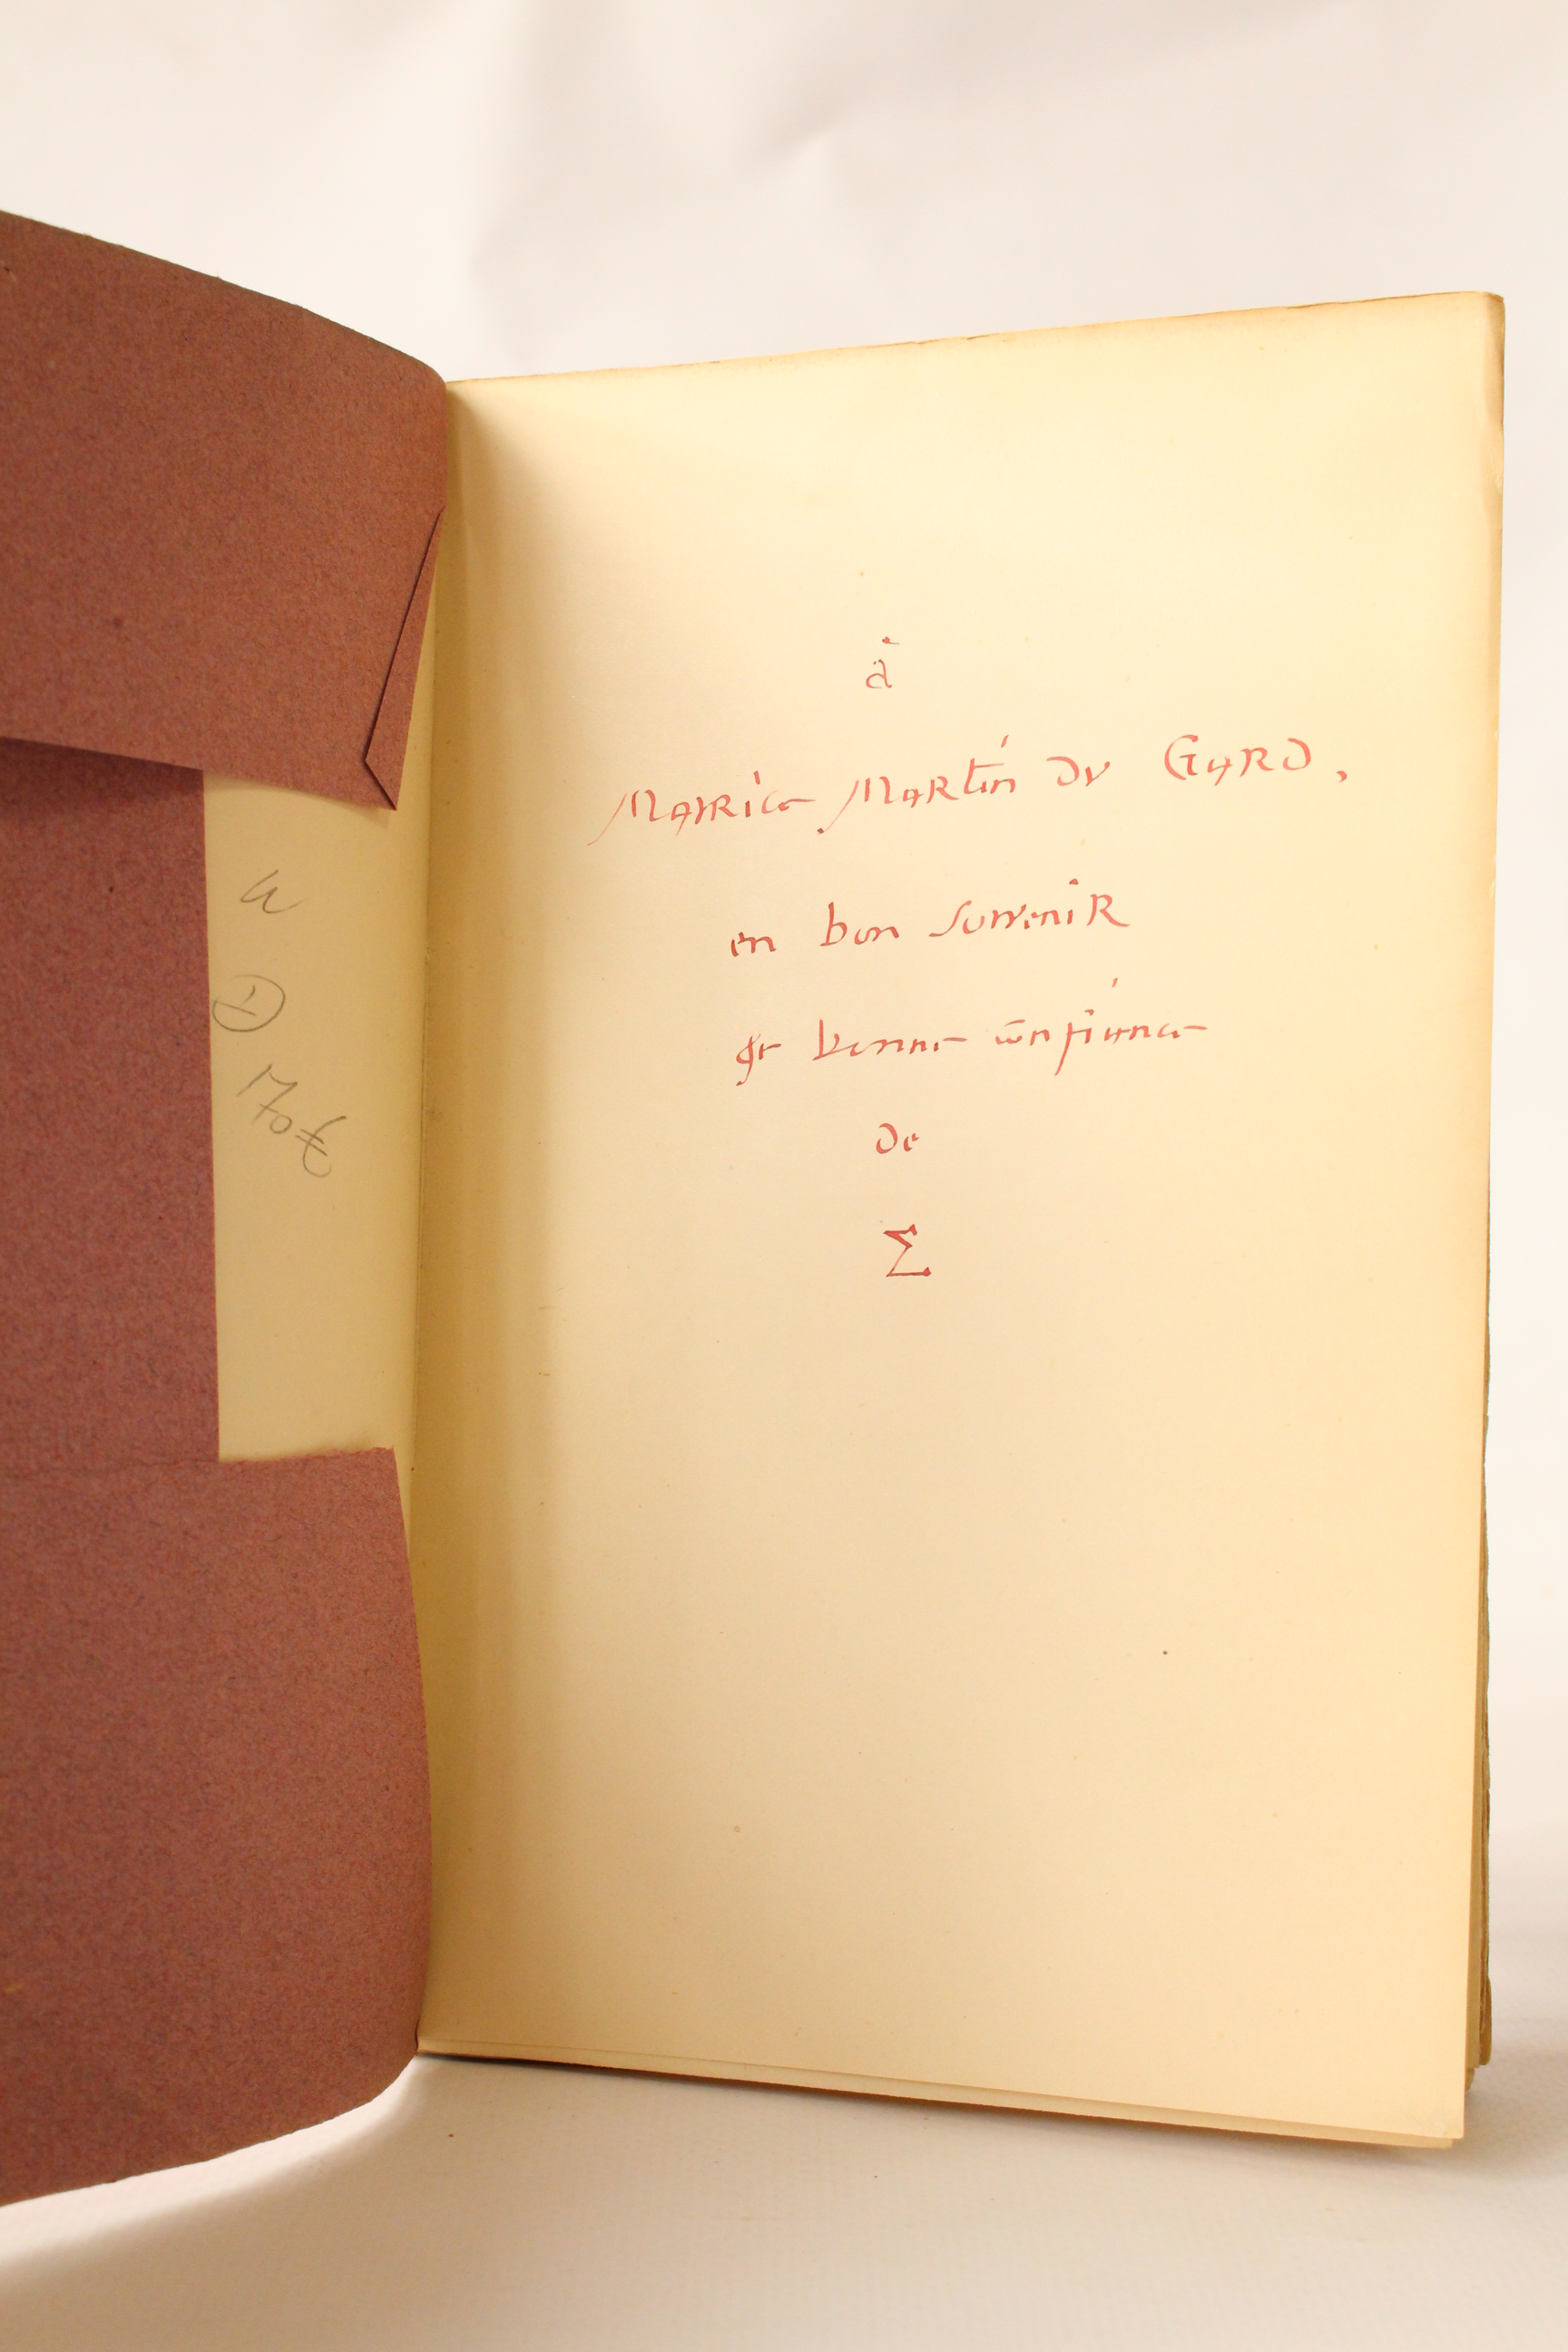 à
Maurice Martin du Gard,
en bon souvenir
et bonne confiance
de
Σ
170€